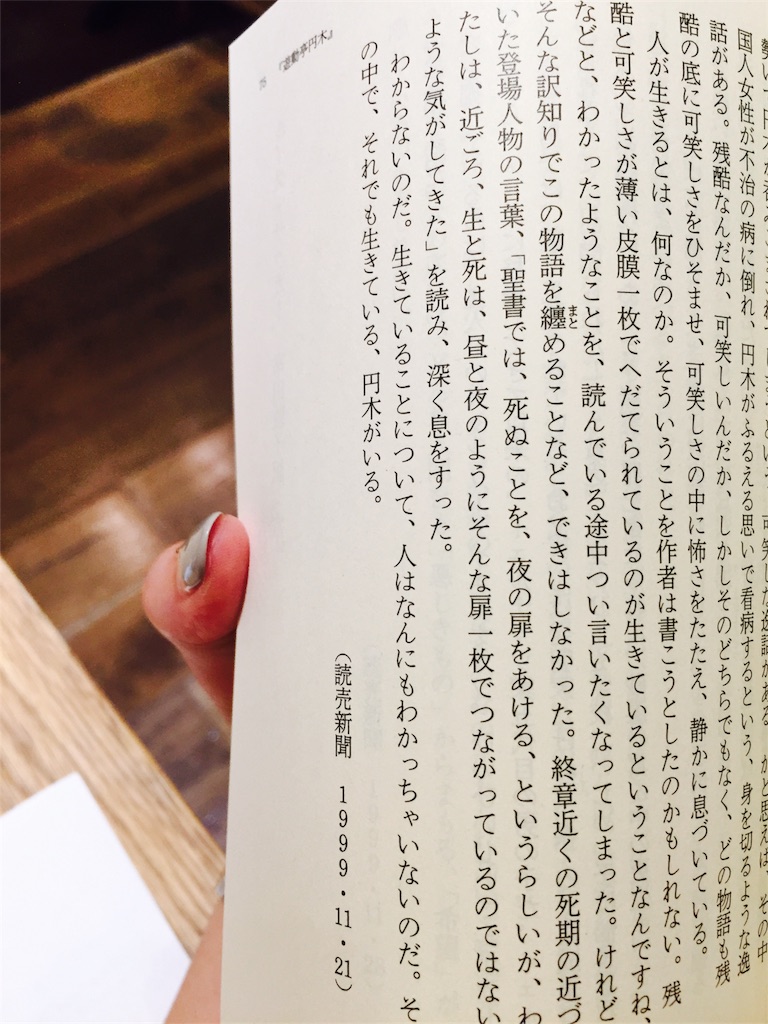 国人女性が不治の病に倒れ、円木がふるえる思いで看病するという、身を切るような逸
話がある。残酷なんだか、可笑しいんだか、しかしそのどちらでもなく、どの物語も残
酷の底に可笑しさをひそませ、可笑しさの中に怖さをたたえ、静かに息づいている。
人が生きるとは、何なのか。そういうことを作者は書こうとしたのかもしれない。残
酷と可笑しさが薄い皮膜一枚でへだてられているのが生きているということなんですね、
などと、わかったようなことを、読んでいる途中つい言いたくなってしまった。けれど
そんな訳知りでこの物語を纏めることなど、できはしなかった。終章近くの死期の近づ
まと
いた登場人物の言葉、「聖書では、死ぬことを、夜の扉をあける、というらしいが、わ
たしは、近ごろ、生と死は、昼と夜のようにそんな扉一枚でつながっているのではない
ような気がしてきた」を読み、深く息をすった。
わからないのだ。生きていることについて、人はなんにもわかっちゃいないのだ。そ
の中で、それでも生きている、円木がいる。
（読売新聞 1999・11・21）
75 『遊動亭円木』